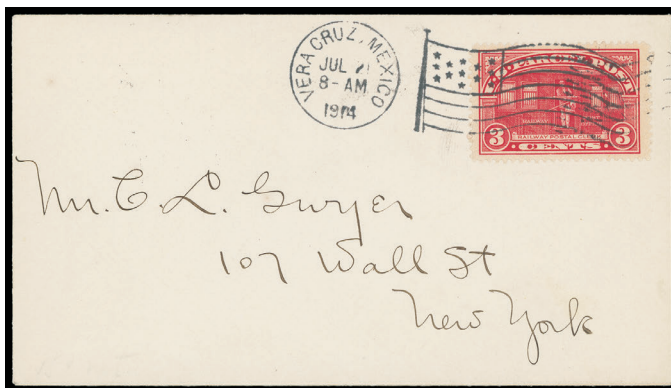 VERA CRUZ, MEXICO
JUL
8-AM
1914
U.S. PARCEL POST
RAILWAY POSTAL CLERK
3 CENTS 3
Mr. C. L. Gwyer
107 Wall St
New York